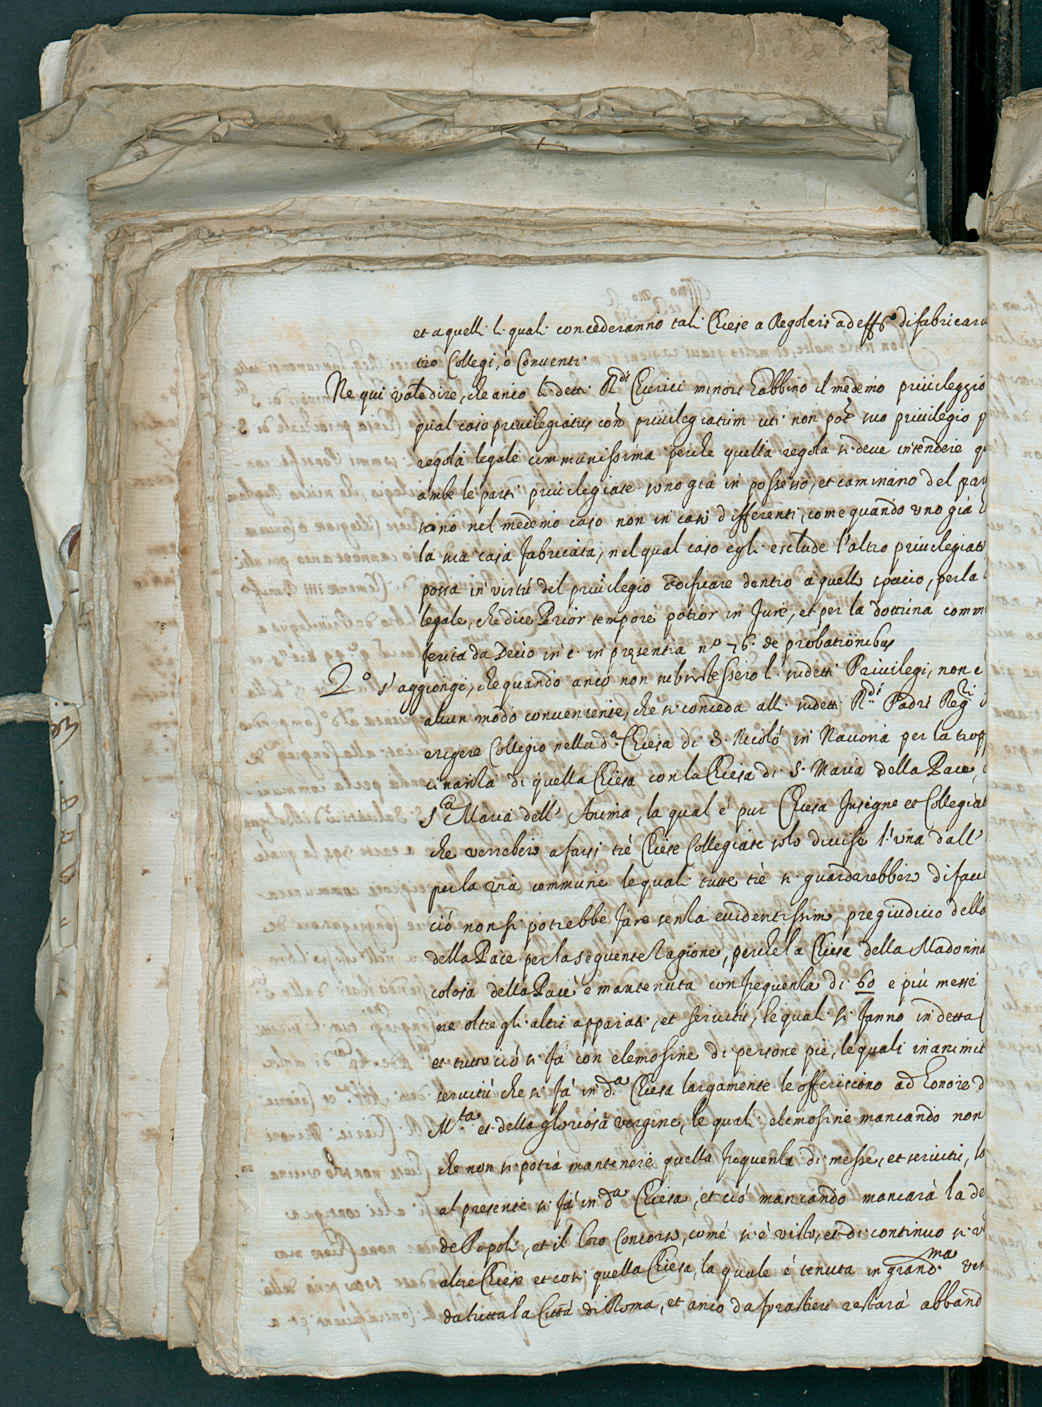 et a quelli li quali concederanno tali Chiese a Regolari ad effº di fabricar
tio Collegi, ò Conventi.
Ne qui vale dire, che anco li detti R.di Clerici minori habbino il medemo privileggio
qual caso privilegiatus contra privilegiatum uti non potest suo privilegio
regola legale communissima perche quella regola si deve intendere
ambe le parti privilegiate sono già in possesso, et caminano del par
tano nel medemo caso non in casi differenti, come quando uno già
la sua casa fabricata, nel qual caso egli esclude l'altro privilegiat
possa in virtù del privilegio edificare dentro à quell spacio, per la
legale, che dice Prior tempore potior in Jure, et per la dottrina comm
ferita da Decio in c. in presentia nº 76. de probationibus
2.º s'aggiongi, che quando anco non subsistessero li sudetti Privilegi, non è
alcun modo conveniente, che si conceda alli sudetti R.di Padri Reg.ri
erigere Collegio nella d.a Chiesa di S. Nicolò in Navona per la trop
cinanza di quella Chiesa con la Chiesa di S. Maria della Pace,
S.a Maria dell' Anima, la qual è pur Chiesa Insigne et Collegiat
che verrebero a farsi trè Chiese Collegiate solo divise l'una dall'
per la via commune le quali tutte trè si guardarebbero di facci
ciò non si potrebbe fare senza evidentissimo pregiudicio della
della Pace per la seguente Ragione, perche la Chiesa della Madonna
colosa della Pace è mantenuta con frequenza di 60 e più messe
ne oltre gli altri apparati, et servitù, le quali si fanno in detta
et tutto ciò si fà con elemosine di persone pie, le quali inanimit
servitù che si fà in d.a Chiesa largamente le offeriscono ad honore d
M.ta et della gloriosa vergine, le quali elemosine mancando non
che non si potrà mantenere quella frequenza di messe, et servitù,
al presente si fà in d.a Chiesa, et ciò mancando mancarà la de
de Popoli, et il loro Concorso, come si è visto, et di continuo si v
altre Chiese et così quella Chiesa, la quale è tenuta in grand.ma ven
da tutta la Città di Roma, et anco da forastieri restarà abband